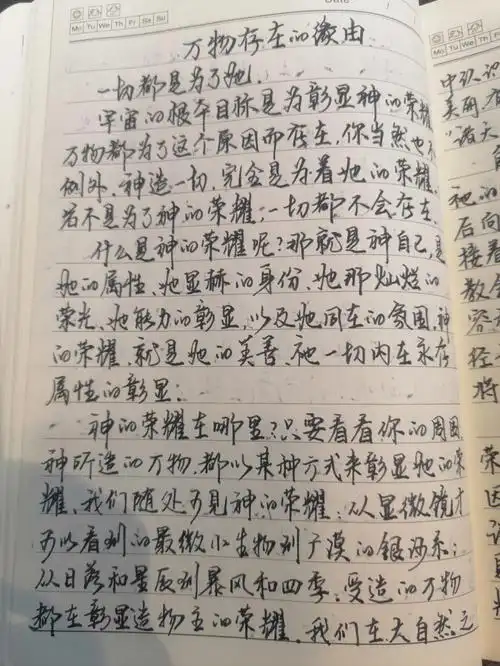 Date
Mo Tu We Th Fr Sa Su
Mo Tu We Th
万物存在的缘由
一切都是为了祂.
宇宙的根本目标是为彰显神的荣耀
万物都为了这个原因而存在,你当然也不
例外,神造一切,完全是为着祂的荣耀.
若不是为了神的荣耀,一切都不会存在.
什么是神的荣耀呢?那就是神自己,是
祂的属性、祂显赫的身份、祂那灿烂的
荣光、祂能力的彰显,以及祂同在的氛围,神
的荣耀,就是祂的美善、祂一切内在永存
属性的彰显;
神的荣耀在哪里?只要看看你的周围,
神所造的万物,都以某种方式来彰显祂的荣
耀.我们随处可见神的荣耀:从显微镜才
可以看到的最微小生物到广漠的银河系;
从日落和星辰到暴风和四季,受造的万物
都在彰显造物主的荣耀.我们在大自然之
美丽,
祂的
后向
接着
教会
容
径
将